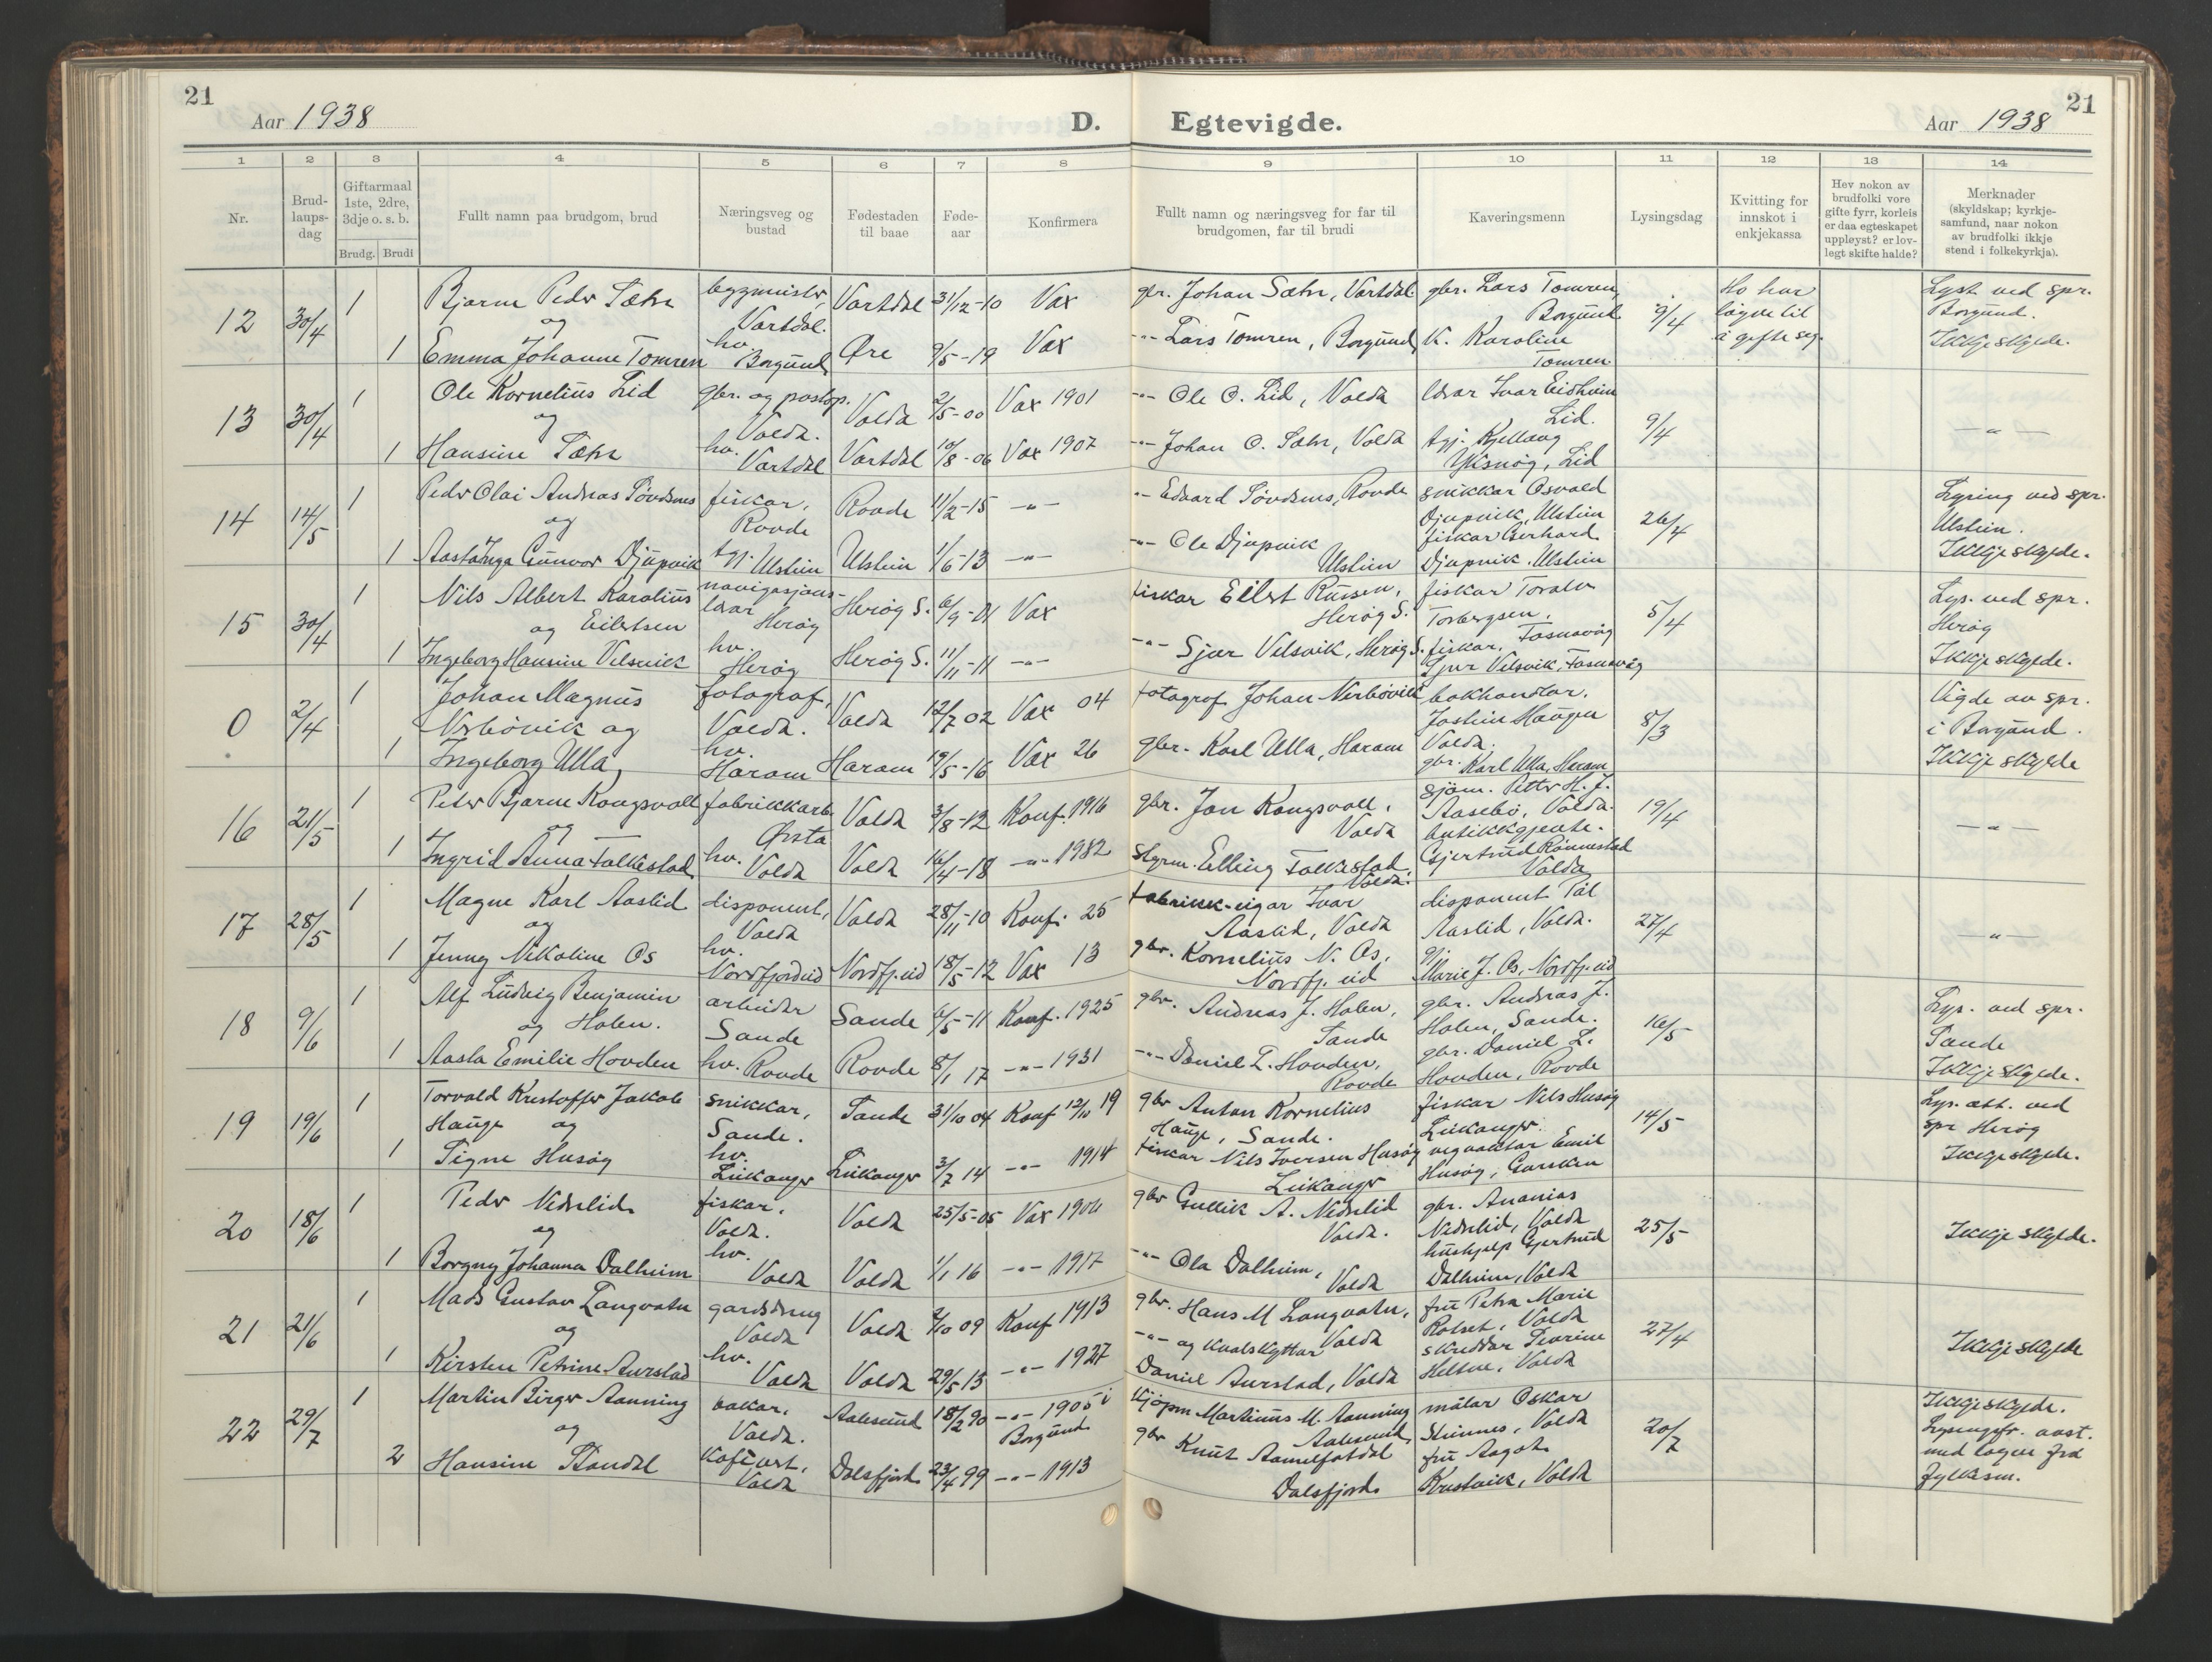 21
Aar 1938
D.
Egtevigde.
Aar 1938
21
1 2 3 4 5 6 7 8 9 10 11 12 13 14
Nr.
Brud-
laups-
dag
Giftarmaal
1ste, 2dre,
3dje o. s. b.
Brudg. Brudi
Fullt namn paa brudgom, brud
Næringsveg og
bustad
Fødestaden
til baae
Føde-
aar
Konfirmera
Fullt namn og næringsveg for far til
brudgomen, far til brudi
Kaveringsmenn
Lysingsdag
Kvitting for
innskot i
enkjekassa
Hev nokon av
brudfolki vore
gifte fyrr, korleis
er daa egteskapet
uppløyst? er lov-
legt skifte halde?
Merknader
(skyldskap; kyrkje-
samfund, naar nokon
av brudfolki ikkje
stend i folkekyrkja).
12 30/4
1 Bjarne Peder Sætre
og
1 Emma Johanne Tomren
bygmeister,
Vartdal.
hv.
Borgund
Vartdal 31/12-10 Vax
Øre 9/5-19 Vax
gbr. Johan Sætre, Vartdal
-"- Lars Tomren, Borgund
gbr. Lars Tomren,
Borgund
K. Karoline
Tomren
9/4
Ho har
løyve til
å gifte seg.
Lyst ved spr.
Borgund.
Ikkje skylde.
13 30/4
1 Ole Kornelius Lid
og
1 Hansine Sætre
gbr. og postop.
Volda.
hv.
Vartdal
Volda 2/5-00 Vax 1901
Vartdal 10/8-06 Vax 1907
-"- Ole O. Lid, Volda
-"- Johan O. Sætre, Volda
lærar Ivar Eidheim
Lid.
tgj. Kjellaug
Yksnøy, Lid
9/4
-"-
14 14/5
1 Peder Olai Andreas Søvdsnes
og
1 Aasta Inga Gunvor Djupvik
fiskar,
Rovde
tgj. Ulstein
Rovde 11/2-15 -"-
Ulstein 1/6-13 -"-
-"- Edvard Søvdsnes, Rovde
-"- Ole Djupvik
Ulstein
snikkar Osvald
Djupvik, Ulstein
fiskar Gerhard
Djupvik, Ulstein
26/4
Lysing ved spr.
Ulstein.
Ikkje skylde.
15 30/4
1 Nils Albert Karolius
og Eilertsen
1 Ingeborg Hansine Velsvik
navigasjons-
lærar
Herøy
hv.
Herøy
Herøy S. 6/9-01 Vax
Herøy S. 11/11-11 -"-
fiskar Eilert
Herøy S.
-"- Sjur Velsvik, Herøy S.
fiskar Toralv
Torbergsen,
Fosnavåg
fiskar,
Sjur Velsvik, Fosnavåg
5/4
Lys. ved spr.
Herøy
Ikkje skylde.
0 2/4
1 Johan Magnus
Nerbøvik og
1 Ingeborg Ulla
fotograf,
Volda.
hv.
Haram
Volda 12/7 02 Vax 04
Haram 19/5-16 Vax 26
fotograf Johan Nerbøvik
gbr. Karl Ulla, Haram
bokhandlar.
Jostein Haugen
Volda.
gbr. Karl Ulla, Haram
8/3
Vigde av spr.
i Borgund.
Ikkje skylde
16 21/5
1 Peter Bjarne Kongsvoll
og
1 Ingrid Anna Folkestad
fabrikkarb.
Ørsta
hv.
Volda
Volda 3/8-12 Konf. 1916
Volda 16/4-18 -"- 1982
gbr. Jon Kongsvoll,
Volda
styrm. Elling Folkestad,
Volda.
sjøm. Petter H. J.
Aasebø, Volda.
butikkgjente.
Gjertrud Rønnestad
Volda
19/4
-"-
17 28/5
1 Magne Karl Aaslid
og
1 Jenny Nikoline Os
disponent,
Volda
hv.
Nordfjordeid
Volda 28/11-10 Konf. 25
Nordfj.eid 18/5-12 Vax 13
fabrikk-eigar Ivar
Aaslid, Volda
gbr. Kornelius N. Os,
Nordfj. eid
disponent Pål
Aaslid, Volda.
gj.
Marie J. Os, Nordfj.eid
27/4
-"-
18 9/6
1 Alf Ludvig Benjamin
og Holen.
1 Aasta Emilie Hovden
arbeidar
Sande
hv. Rovde
Sande 6/5-11 Konf. 1925
Rovde 8/1 17 -"- 1931
gbr. Andreas J. Holen,
Sande
-"- Daniel L. Hovden,
Rovde
gbr. Andreas J.
Holen, Sande.
gbr. Daniel L.
Hovden, Rovde
16/5
Lys. ved spr.
Sande
Ikkje skylde.
19 19/6
1 Torvald Kristoffer Jakob
Hauge og
1 Signe Husøy
snikkar,
Sande.
hv.
Leikanger
Sande 31/10 04 Konf 12/10 19
Leikanger 3/7 14 -"- 1914
gbr Anton Kornelius
Hauge, Sande.
fiskar Nils Iversen Husøy
Leikanger
fiskar Nils Husøy
Leikanger.
vegvaktar Emil
Husøy, Gursken
14/5
Lys. att. ved
spr Herøy
Ikkje skylde.
20 18/6
1 Peder Nedrelid
og
1 Borgny Johanna Dalheim
fiskar.
Volda.
hv.
Volda
Volda 25/5-05 Vax 1906
Volda 1/1 16 -"- 1917
gbr Gullik A. Nedrelid
Volda.
-"- Ola Dalheim,
Volda
gbr. Ananias
Nedrelid, Volda
hushjelp Gjertrud
Dalheim, Volda
25/5
Ikkje skylde.
21 21/6
1 Mads Gustav Langvatn
og
1 Kirsten Petrine Aurstad
gardsdreng
Volda
hv.
Volda
Volda 2/10 09 Konf 1913
Volda 29/5 13 -"- 1927
gbr. Hans M Langvatn,
Volda
-"- og kvalskyttar
Daniel Aurstad, Volda
fru Petra Marie
Rotset, Volda
skreddar Severine
Helsve, Volda
27/4
Ikkje skylde
22 29/7
1 Martin Birger Aanning
og
2 Hansine Standal
bakar,
Volda.
Kafévert,
Volda
Aalesund 18/2 90 -"- 1905 i
Borgund
Dalsfjord 23/4 99 -"- 1913
kjøpm Martinus M. Aanning
Aalesund
gbr Knut Aamelfotdal
Dalsfjord
målar Oskar
Steinnes, Volda
fru Aagot
Krustvik, Volda
20/7
Ikkje skylde.
Lysingsfr. avst.
med løyve frå
fylkesm.